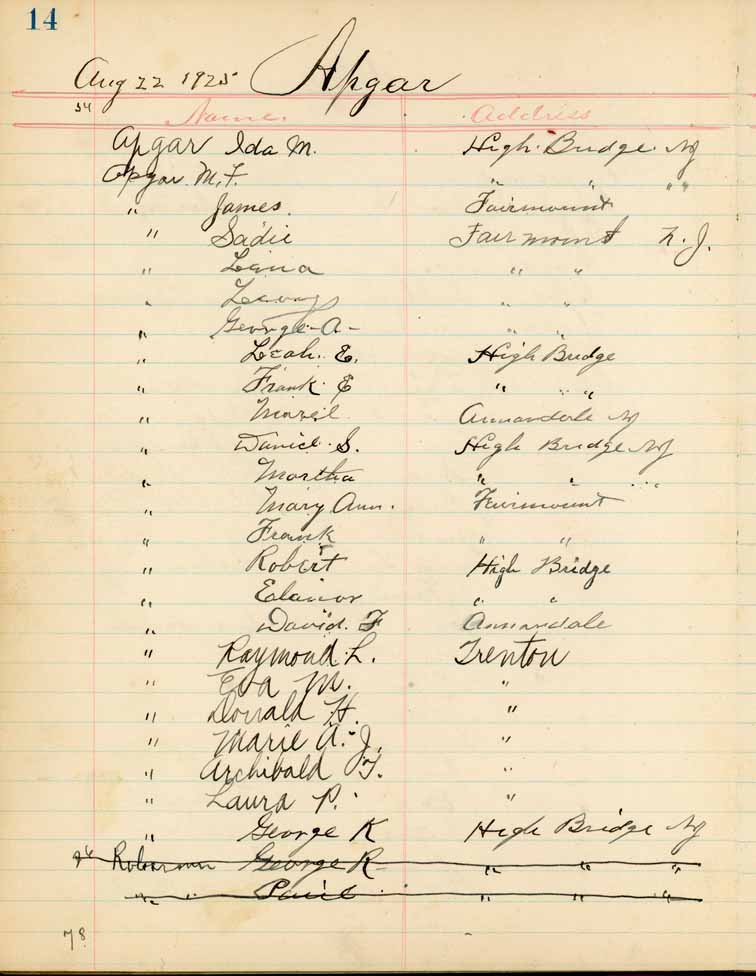 14
Aug 22 1925 Apgar
54
Name. Address
Apgar Ida M. High Bridge NJ
Apgar M. F. " " " "
" James. Fairmount
" Sadie Fairmount N. J.
" Lena " "
" " "
" George A- " "
" Leah. E. High Bridge
" Frank E " " "
" Annandale NJ
" Daniel S. High Bridge NJ
" Martha " " "
" Mary Ann. Fairmount
" Frank " "
" Robert High Bridge
" Elanor " "
" David. F Annandale
" Raymond L. Trenton
" Eva M. "
" Donald H. "
" Marie A. J. "
" Archibald "
" Laura P. "
" George K High Bridge NJ
George R " " "
" " " " "
78